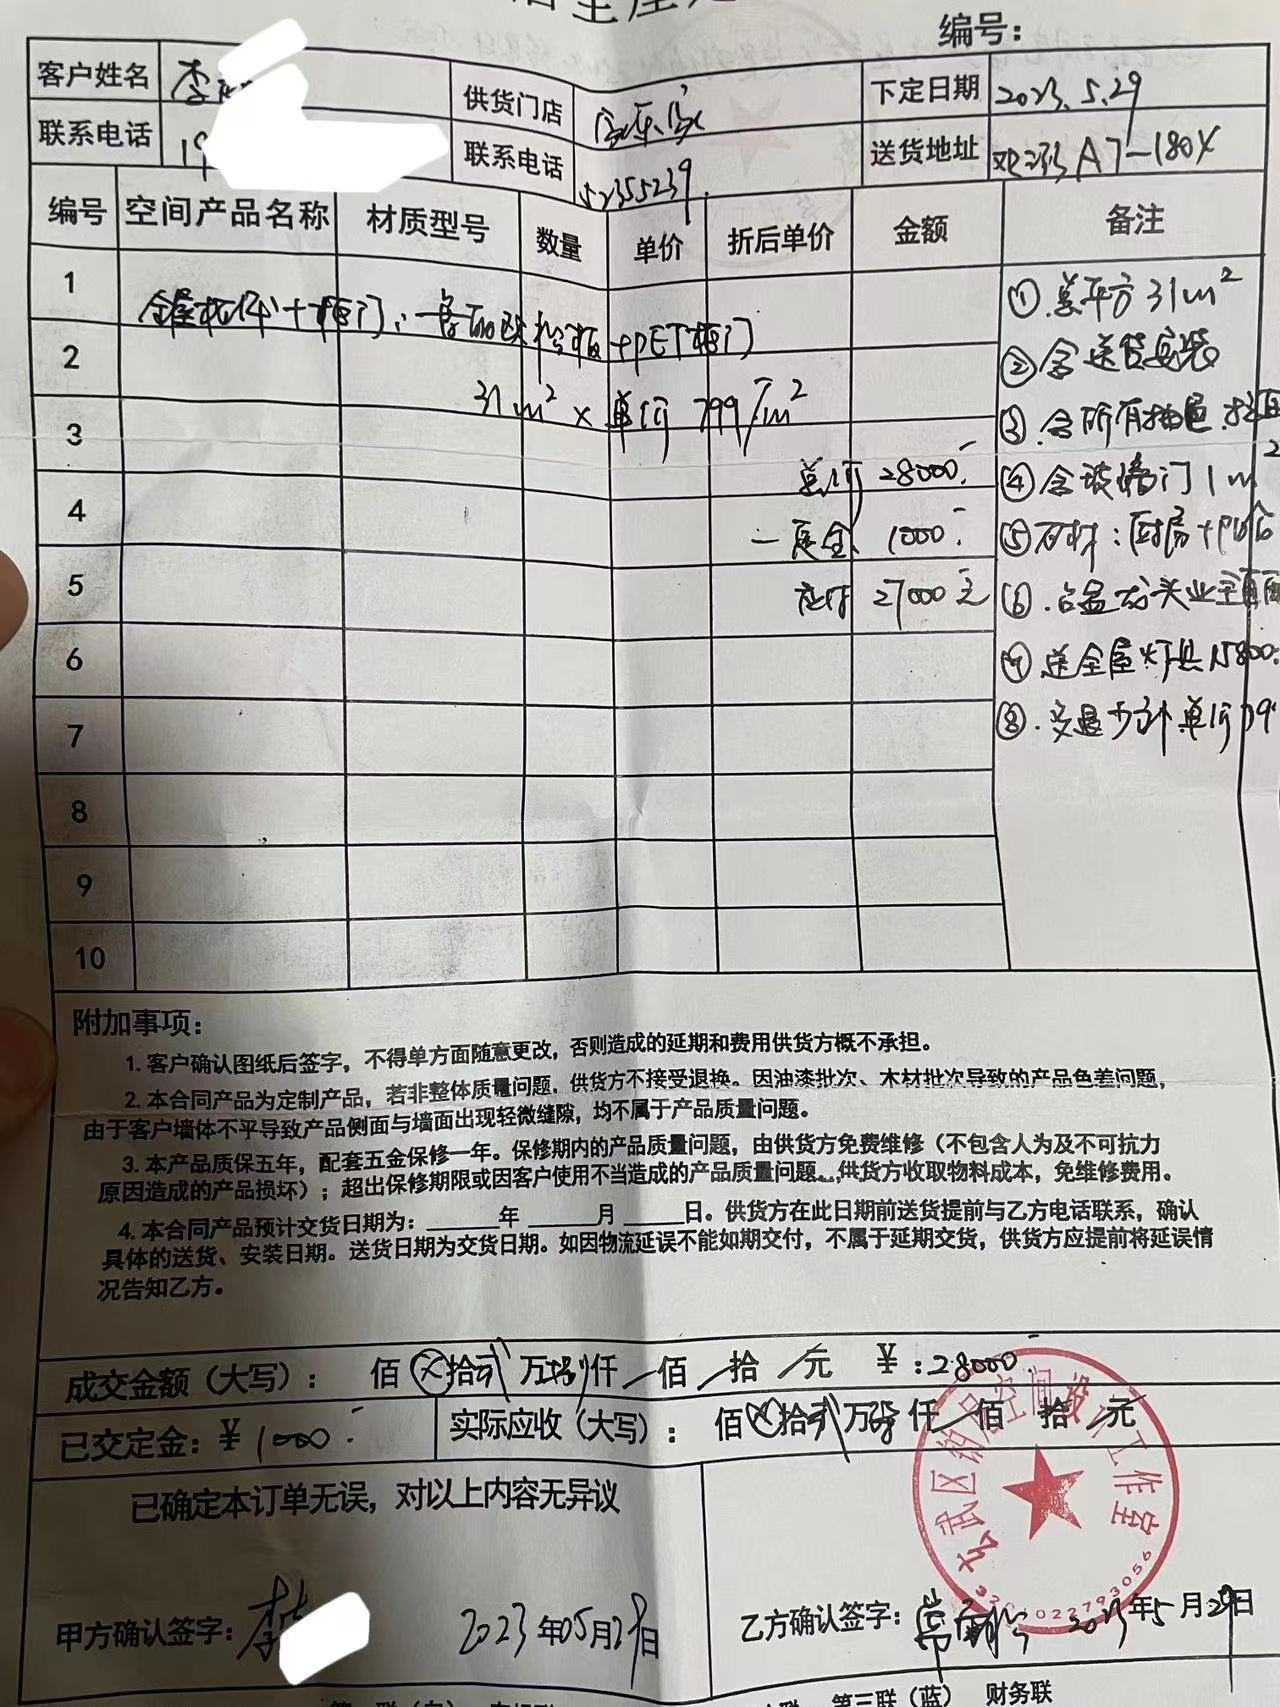 编号：
客户姓名 李
供货门店
下定日期 2023.5.29
联系电话 19
联系电话 52355239
送货地址 A7-180
编号 空间产品名称 材质型号 数量 单价 折后单价 金额 备注
1
2
3
4
5
6
7
8
9
10
全屋柜体+柜门： +PET柜门
31m² × 单价 799/m²
总价 28000.-
-定金 1000.-
应付 27000元
① 总平方 31m²
② 含送货安装
③ 含所有抽屉
④ 含玻璃门1m²
⑤ 石材：厨房+
⑥ 台盆龙头业主自
⑦ 送全屋灯具15800
⑧ 多退少补 单价
附加事项：
1. 客户确认图纸后签字，不得单方面随意更改，否则造成的延期和费用供货方概不承担。
2. 本合同产品为定制产品，若非整体质量问题，供货方不接受退换。因油漆批次、木材批次导致的产品色差问题，
由于客户墙体不平导致产品侧面与墙面出现轻微缝隙，均不属于产品质量问题。
3. 本产品质保五年，配套五金保修一年。保修期内的产品质量问题，由供货方免费维修（不包含人为及不可抗力
原因造成的产品损坏）；超出保修期限或因客户使用不当造成的产品质量问题，供货方收取物料成本，免维修费用。
4. 本合同产品预计交货日期为：______年______月______日。供货方在此日期前送货提前与乙方电话联系，确认
具体的送货、安装日期。送货日期为交货日期。如因物流延误不能如期交付，不属于延期交货，供货方应提前将延误情
况告知乙方。
成交金额（大写）： 佰 ⊗拾 贰万 捌仟 佰 拾 元 ¥：28000.-
已交定金：¥ 1000.-
实际应收（大写）： 佰 ⊗拾 贰万 仟 佰 拾 元
已确定本订单无误，对以上内容无异议
甲方确认签字：李 2023年05月29日
乙方确认签字： 2023年5月29日
武区 品空间设计工作室
022793056
第三联（蓝） 财务联